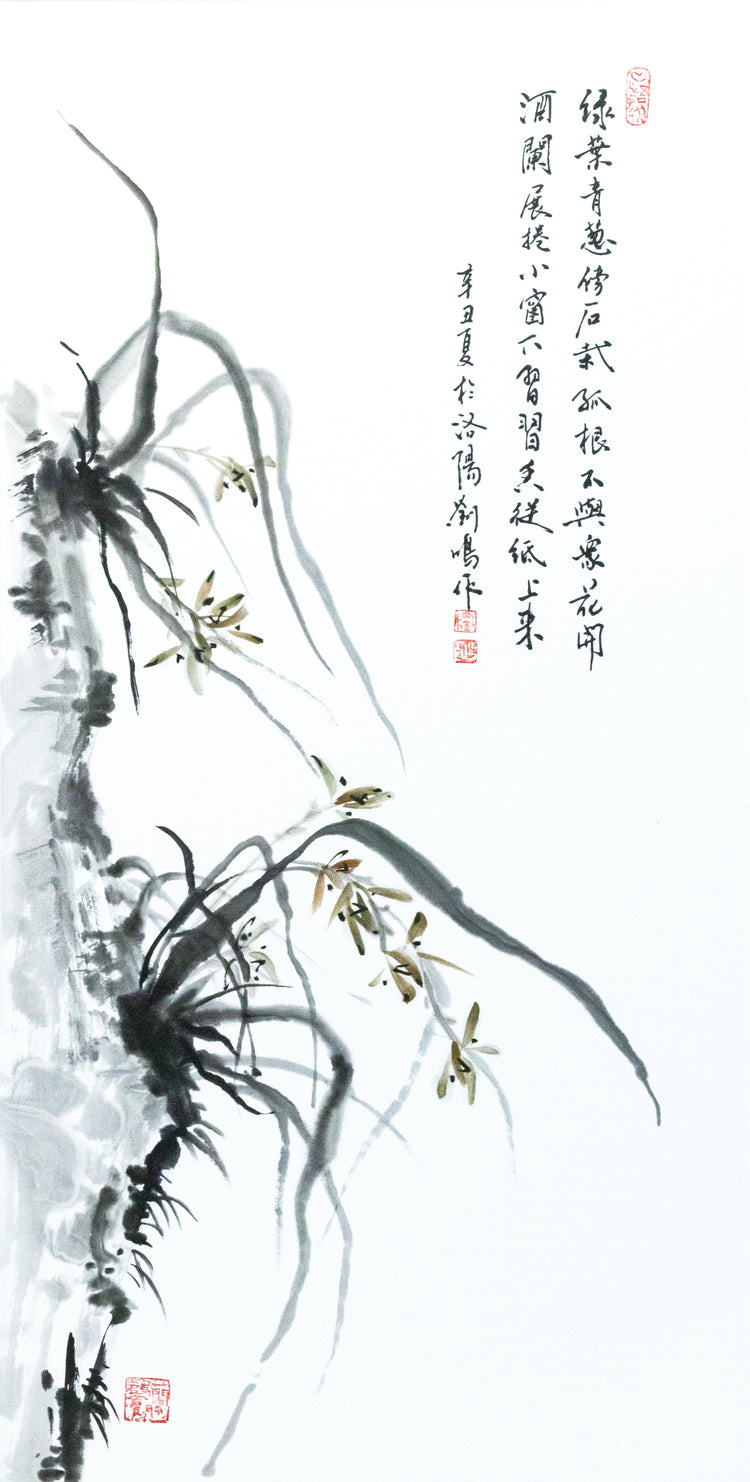 绿葉青蔥傍石栽孤根不與衆花開
酒闌展捲小窗下習習香從紙上来
辛丑夏於洛陽劉鳴作